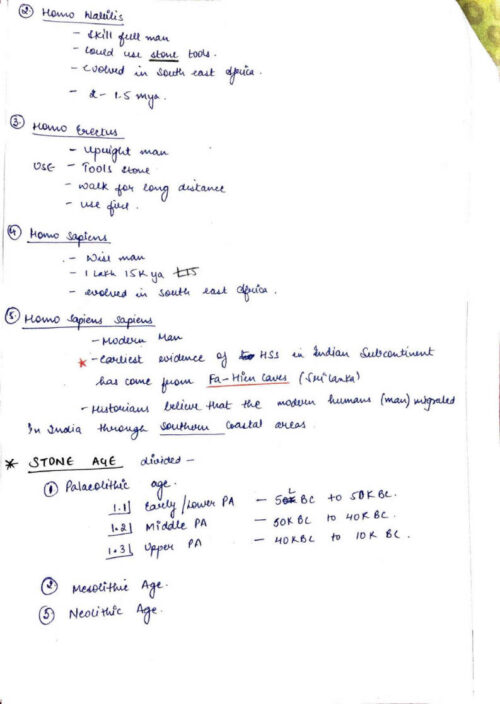 ② Homo Habilis
- Skill full man
- Could use stone tools.
- evolved in south east Africa.
- 2 - 1.5 mya.
③ Homo Erectus
- Upright man
USE - Tools stone
- walk for long distance
- use fire.
④ Homo Sapiens
- Wise man
- 1 Lakh 15K ya
- evolved in south east Africa.
⑤ Homo Sapiens Sapiens
- Modern Man
* - earliest evidence of HSS in Indian Subcontinent
has come from Fa-Hien caves (Sri Lanka)
- Historians believe that the modern humans (man) migrated
In India through southern coastal areas.
* STONE AGE divided -
① Palaeolithic age.
1.1 Early/Lower PA - 5L BC to 50K BC.
1.2 Middle PA - 50K BC to 40K BC.
1.3 Upper PA - 40K BC to 10K BC.
② Mesolithic Age.
③ Neolithic Age.